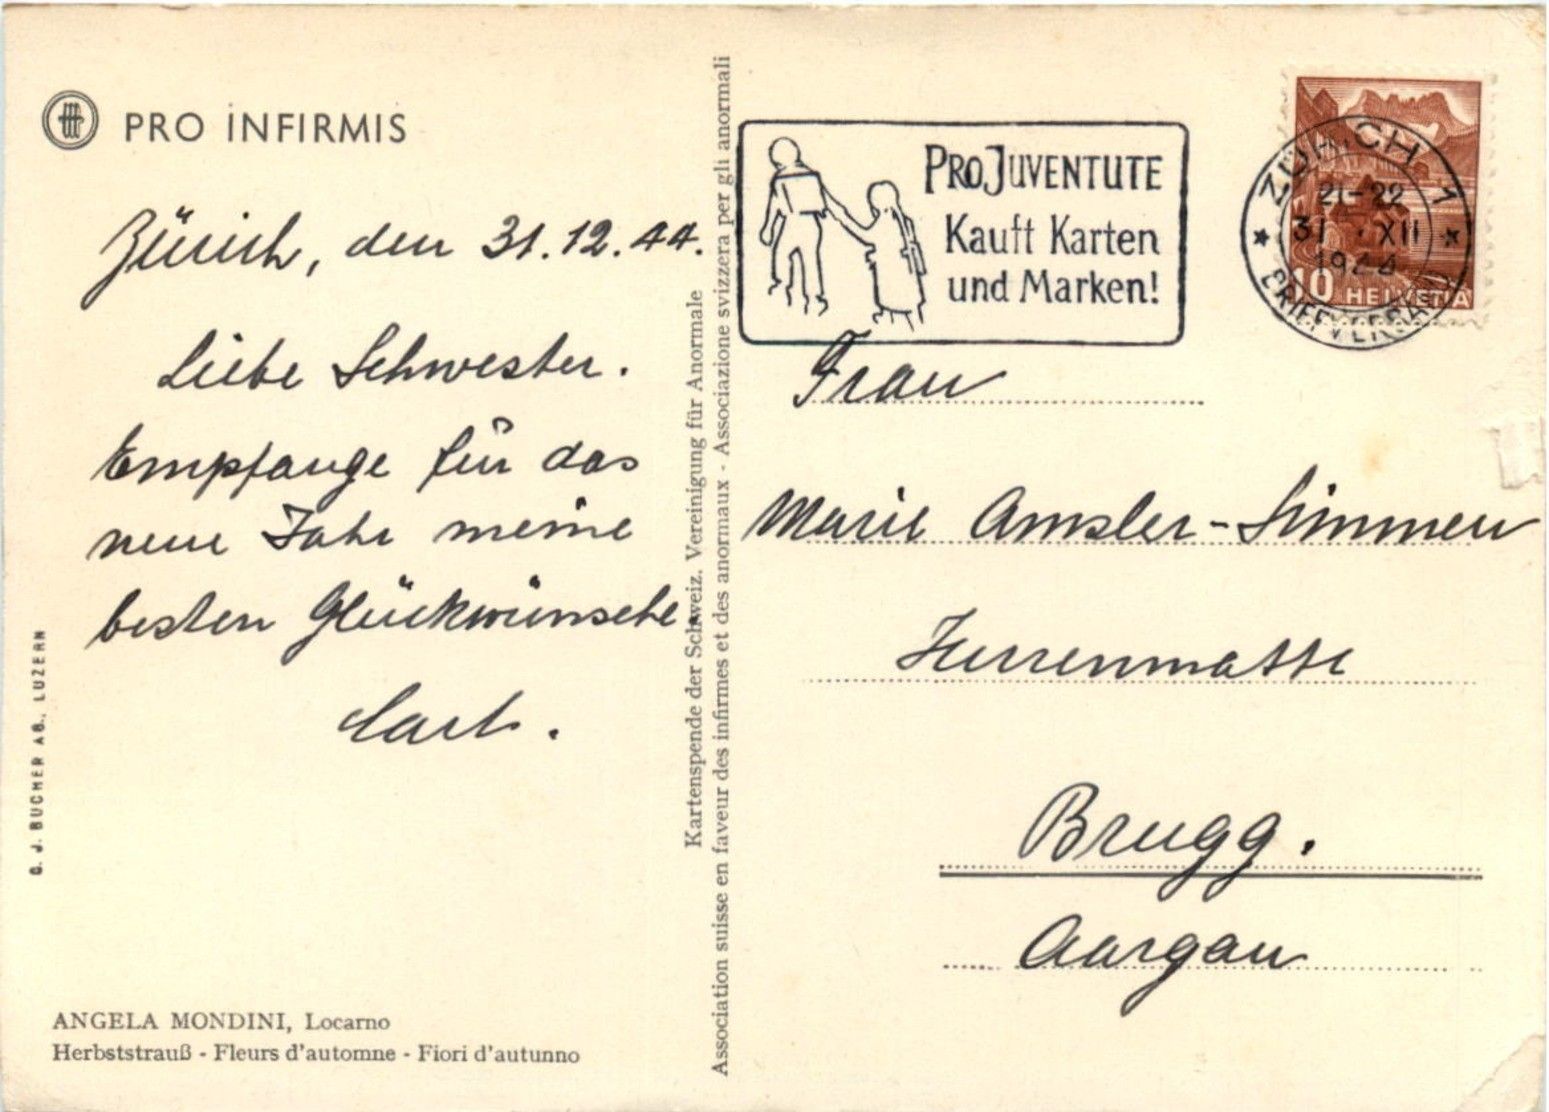 PRO INFIRMIS
Zürich, den 31.12.44.
Liebe Schwester.
Empfange für das
neue Jahr meine
besten Glückwünsche.
Carl.
ANGELA MONDINI, Locarno
Herbststrauß - Fleurs d'automne - Fiori d'autunno
C. J. BUCHER AG., LUZERN
Kartenspende der Schweiz. Vereinigung für Anormale
Association suisse en faveur des infirmes et des anormaux - Associazione svizzera per gli anormali
PRO JUVENTUTE
Kauft Karten
und Marken!
ZÜRICH 1
21-22
31.XII
1944
BRIEFVERSAND
10 HELVETIA
Frau
Marie Amsler-Simmen
Herrenmatte
Brugg.
Aargau